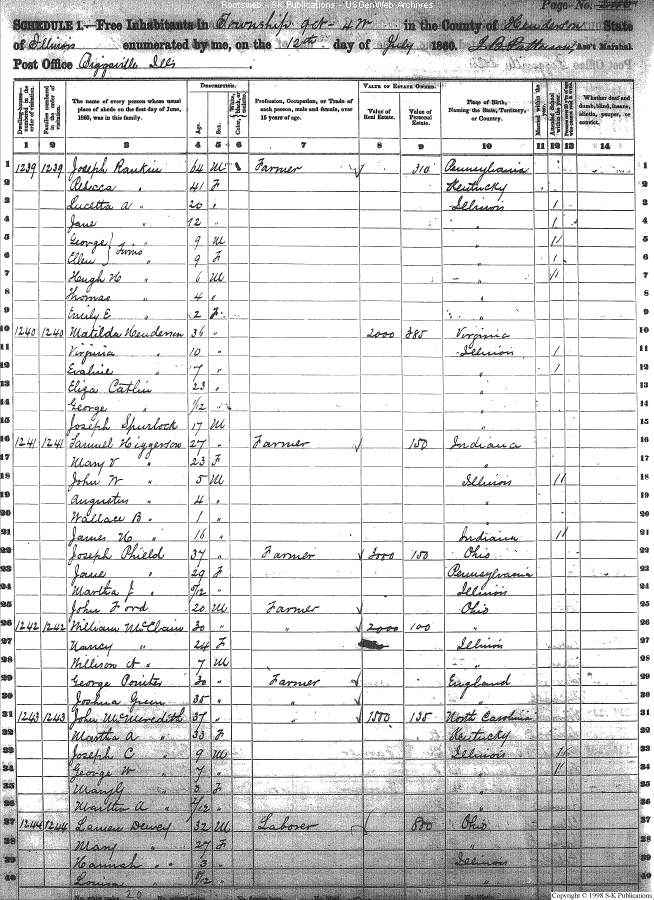 Rootsweb - SK Publications - USGenWeb Archives
Page No.
SCHEDULE 1.—Free Inhabitants in Township 9 of - 4 W in the County of Henderson State
of Illinois enumerated by me, on the 12th day of July 1860. J B Patterson Ass't Marshal.
Post Office Biggsville Ills
Dwelling-houses numbered in the order of visitation. Families numbered in the order of visitation. The name of every person whose usual place of abode on the first day of June, 1860, was in this family. Description. Age. Sex. Profession, Occupation, or Trade of each person, male and female, over 15 years of age. Value of Estate Owned. Value of Real Estate. Value of Personal Estate. Place of Birth, Naming the State, Territory, or Country. Whether deaf and dumb, blind, insane, idiotic, pauper, or convict.
1 2 3 4 5 6 7 8 9 10 11 12 13 14
1 1239 1239 Joseph Rankin 64 M Farmer 310 Pennsylvania 1
2 Rebecca " 41 F Kentucky 2
3 Lucetta A " 20 " Illinois 1 3
4 Jane " 12 " " 1 4
5 George } Twins " 9 M " 1 5
6 Ellen } " 9 F " 1 6
7 Hugh N " 6 M " 1 7
8 Thomas " 4 " " 8
9 Emily E " 2 F " 9
10 1240 1240 Matilda Henderson 36 " 2000 385 Virginia 10
11 Virginia " 10 " Illinois 1 11
12 Evaline " 7 " " 1 12
13 Eliza Catlin 23 " " 13
14 George " 1/12 " " 14
15 Joseph Spurlock 17 M " 15
16 1241 1241 Samuel Higgerson 27 " Farmer 150 Indiana 16
17 Mary V " 23 F " 17
18 John W " 5 M Illinois 1 18
19 Augustus " 4 " " 19
20 Wallace B " 1 " " 20
21 James H " 16 " Indiana 1 21
22 Joseph Phield 37 " Farmer 3000 150 Ohio 22
23 Jane " 29 F Pennsylvania 23
24 Martha J " Illinois 24
25 John Ford 20 M Farmer Ohio 25
26 1242 1242 William McClain 30 " " 2000 100 " 26
27 Nancy " 24 F Illinois 27
28 Willison A " 7 M " 28
29 George Pointer 30 " Farmer England 29
30 Joshua Green 35 " " " 30
31 1243 1243 John McMeredith 37 " " 1500 135 North Carolina 31
32 Martha A " 33 F Kentucky 32
33 Joseph C " 9 M Illinois 1 33
34 George W " 7 " " 1 34
35 Mary " 3 F " 35
36 Martha A " " " 36
37 1244 1244 Dewey 32 M Laborer 800 Ohio 37
38 Mary " 27 F " 38
39 Hannah " 3 " Illinois 39
40 Louisa " " " 40
Copyright © 1998 S-K Publications